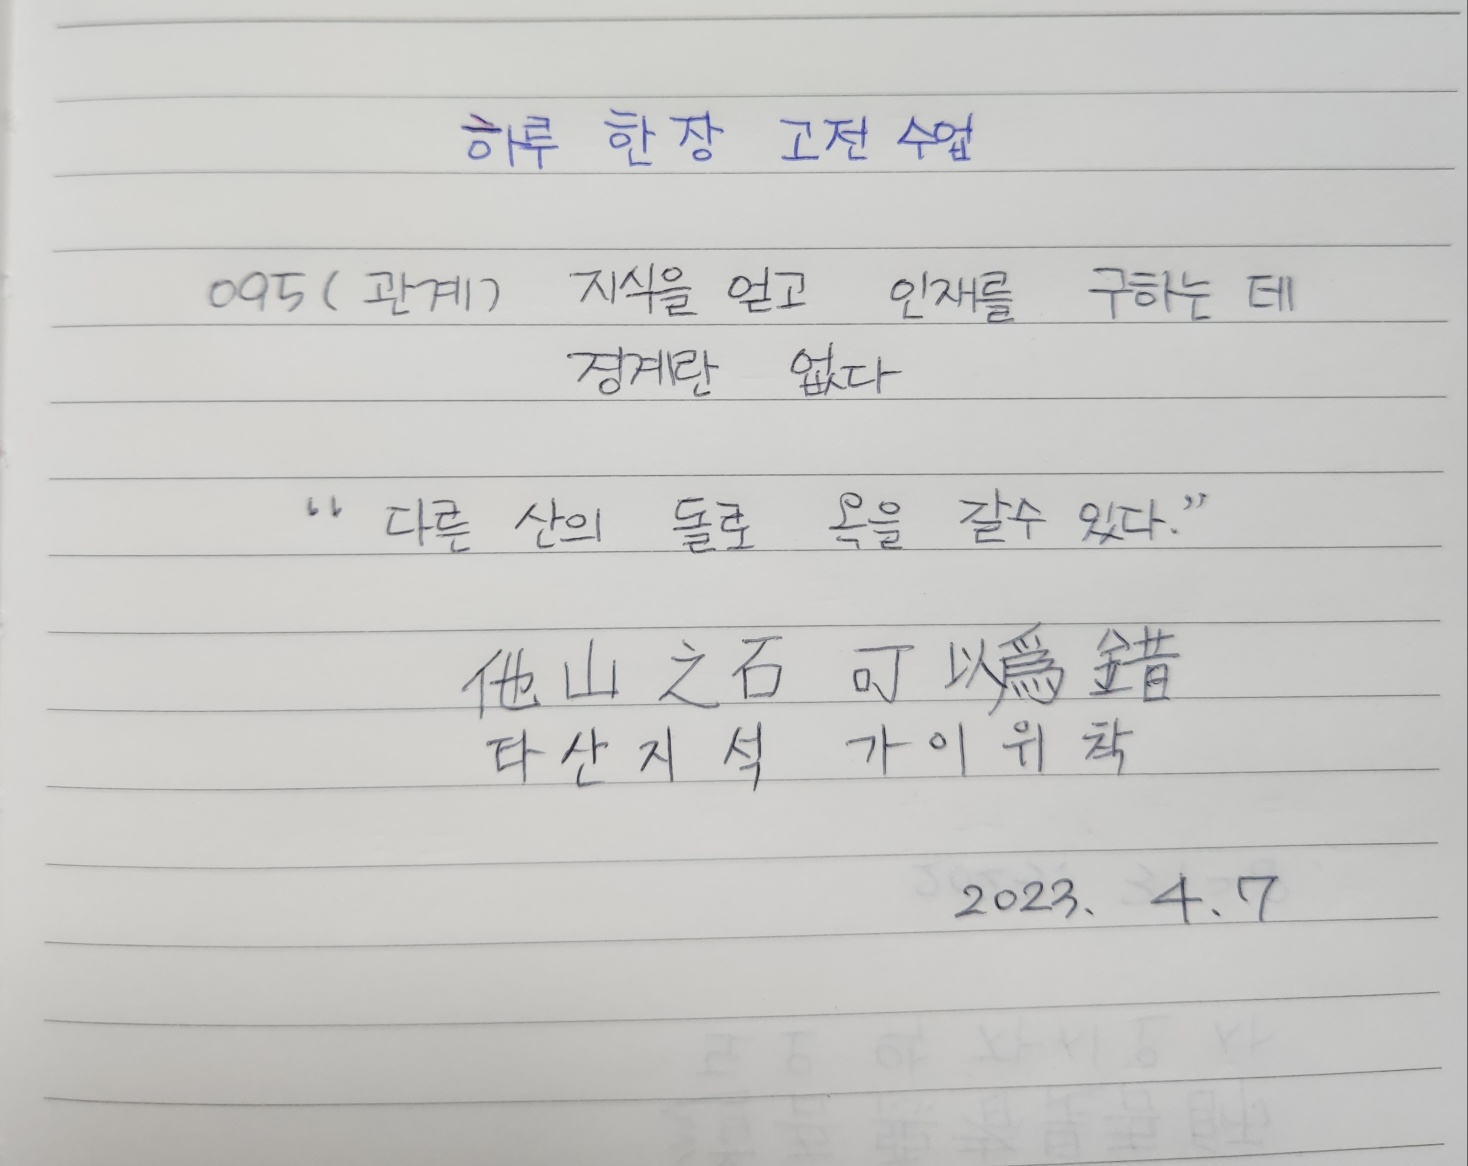 하루 한 장 고전 수업
095(관계) 지식을 얻고 인재를 구하는 데
경계란 없다
“다른 산의 돌로 옥을 갈수 있다.”
他山之石 可以爲錯
타산지석 가이위착
2023. 4.7